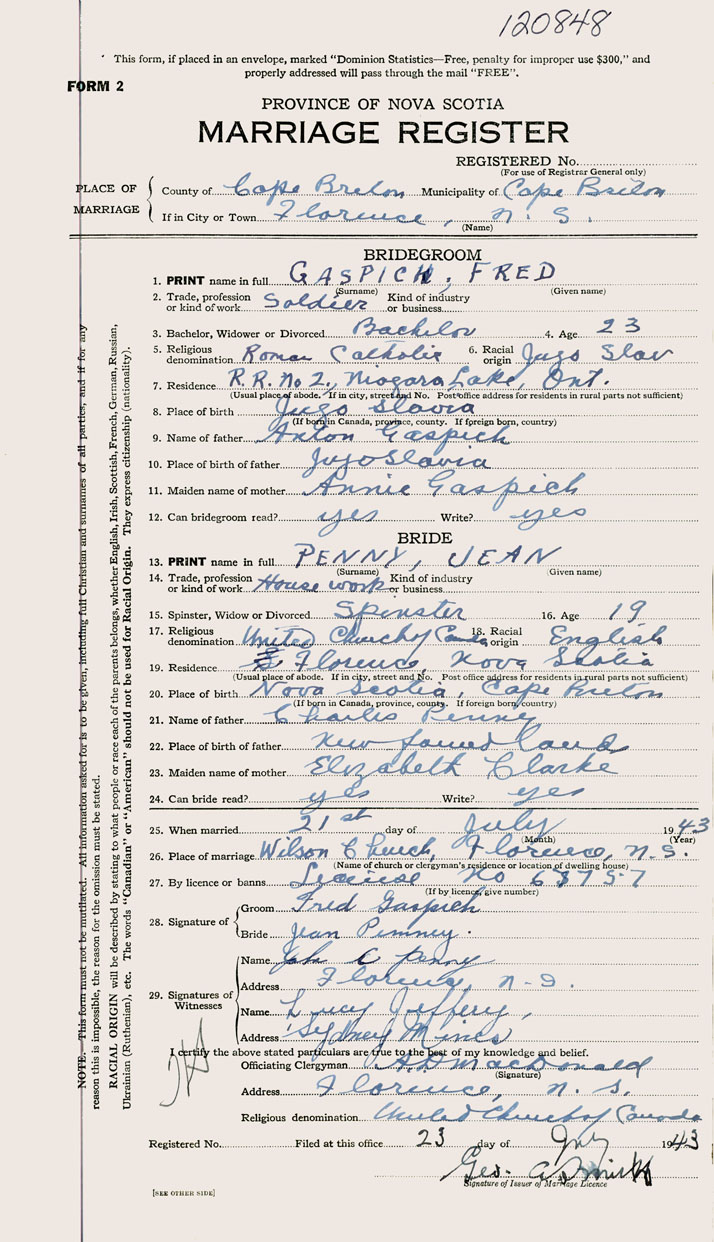 120848
This form, if placed in an envelope, marked "Dominion Statistics—Free, penalty for improper use $300," and
properly addressed will pass through the mail "FREE".
FORM 2
PROVINCE OF NOVA SCOTIA
MARRIAGE REGISTER
REGISTERED No.
(For use of Registrar General only)
PLACE OF MARRIAGE
County of Cape Breton Municipality of Cape Breton
If in City or Town Florence, N. S.
(Name)
BRIDEGROOM
1. PRINT name in full GASPICH, FRED
(Surname) (Given name)
2. Trade, profession or kind of work Soldier Kind of industry or business
3. Bachelor, Widower or Divorced Bachelor 4. Age 23
5. Religious denomination Roman Catholic 6. Racial origin Jugo Slav
7. Residence R.R. No 2., Niagara Lake, Ont.
(Usual place of abode. If in city, street and No. Post office address for residents in rural parts not sufficient)
8. Place of birth Jugo Slavia
(If born in Canada, province, county. If foreign born, country)
9. Name of father Anton Gaspich
10. Place of birth of father JugoSlavia
11. Maiden name of mother Annie Gaspich
12. Can bridegroom read? yes Write? yes
BRIDE
13. PRINT name in full PENNY, JEAN
(Surname) (Given name)
14. Trade, profession or kind of work House work Kind of industry or business
15. Spinster, Widow or Divorced Spinster 16. Age 19
17. Religious denomination United Church of Canada 18. Racial origin English
19. Residence Florence, Nova Scotia
(Usual place of abode. If in city, street and No. Post office address for residents in rural parts not sufficient)
20. Place of birth Nova Scotia, Cape Breton
(If born in Canada, province, county. If foreign born, country)
21. Name of father Charles Penny
22. Place of birth of father New found land
23. Maiden name of mother Elizabeth Clarke
24. Can bride read? yes Write? yes
25. When married 21st day of July 1943
(Month) (Year)
26. Place of marriage Wilson Church, Florence, N.S.
(Name of church or clergyman's residence or location of dwelling house)
27. By licence or banns License No 68757
(If by licence, give number)
28. Signature of
Groom Fred Gaspich
Bride Jean Penney.
29. Signatures of Witnesses
Name C Penny
Address Florence, N-S.
Name Lucy Jeffery,
Address Sydney Mines
I certify the above stated particulars are true to the best of my knowledge and belief.
Officiating Clergyman A.D. MacDonald
(Signature)
Address Florence, N. S.
Religious denomination United Church of Canada
Registered No. Filed at this office 23 day of July 1943
Geo. A Smith
Signature of Issuer of Marriage Licence
[SEE OTHER SIDE]
NOTE. This form must not be mutilated. All information asked for is to be given, including full Christian and surnames of all parties, and if for any
reason this is impossible, the reason for the omission must be stated.
RACIAL ORIGIN will be described by stating to what people or race each of the parents belongs, whether English, Irish, Scottish, French, German, Russian,
Ukrainian (Ruthenian), etc. The words "Canadian" or "American" should not be used for Racial Origin. They express citizenship (nationality).